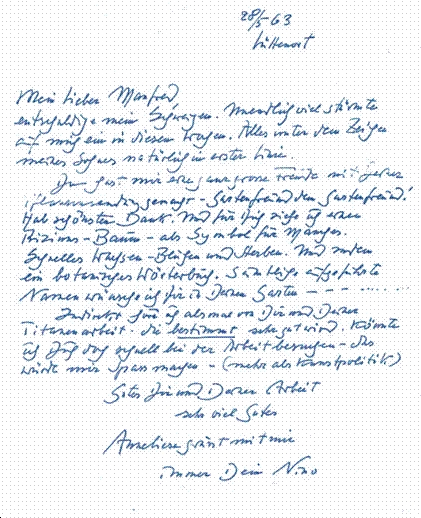 28/5 63
Lüttenort
Mein Lieber Manfred,
entschuldige mein Schweigen. Unendlich viel stürmte
auf mich ein in diesen Tagen. Alles unter dem Zeichen
meines Sohnes natürlich in erster Linie.
Du hast mir eine ganz grosse Freude mit Deiner
gemacht - Gartenfreund dem Gartenfreund!
Hab schönsten Dank. Und für Dich ziehe ich einen
Rizinus-Baum - als Symbol für Manches.
Schnelles Wachsen - Blühen und Sterben. Und
ein botanisches Wörterbuch. Sämtliche aufgeführte
Namen wünsche ich für in Deinen Garten - - -
Indirekt höre ich als mal von Dir und Deiner
Titanenarbeit - die bestimmt sehr gut wird. Könnte
ich Dich doch schnell bei der Arbeit besuchen - das
würde mir Spass machen - (mehr als Kunstpolitik!)
Gutes Dir und Deiner Arbeit
sehr viel Gutes
Anneliese grüsst mit mir
immer Dein Nino